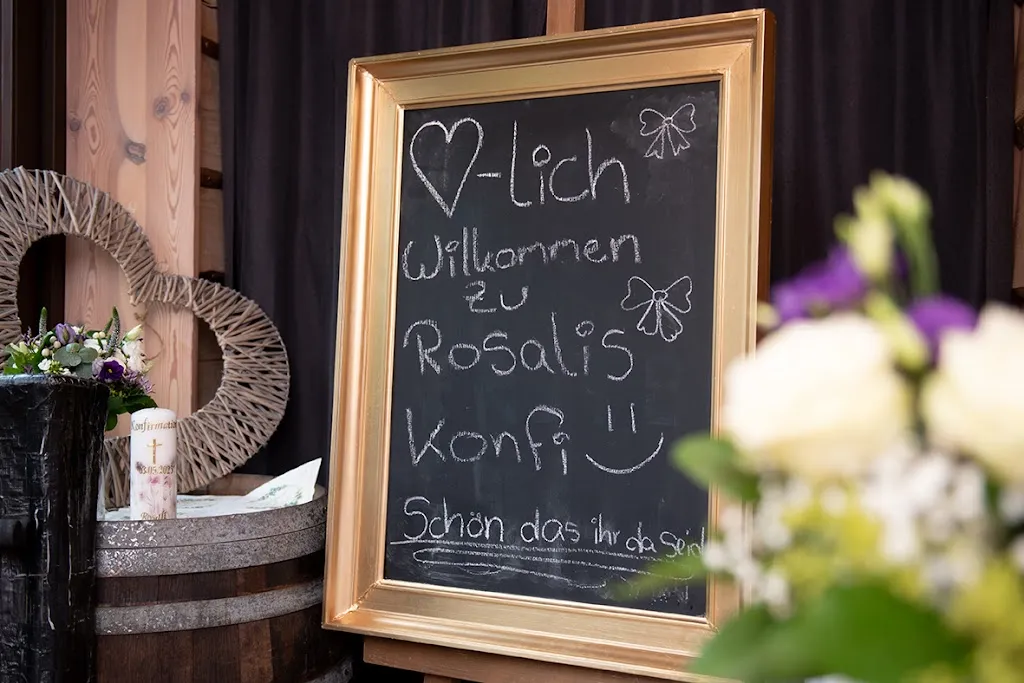 ♡-lich
Willkommen
zu
Rosalis
Konfi
Schön das ihr da seid
Konfirmation